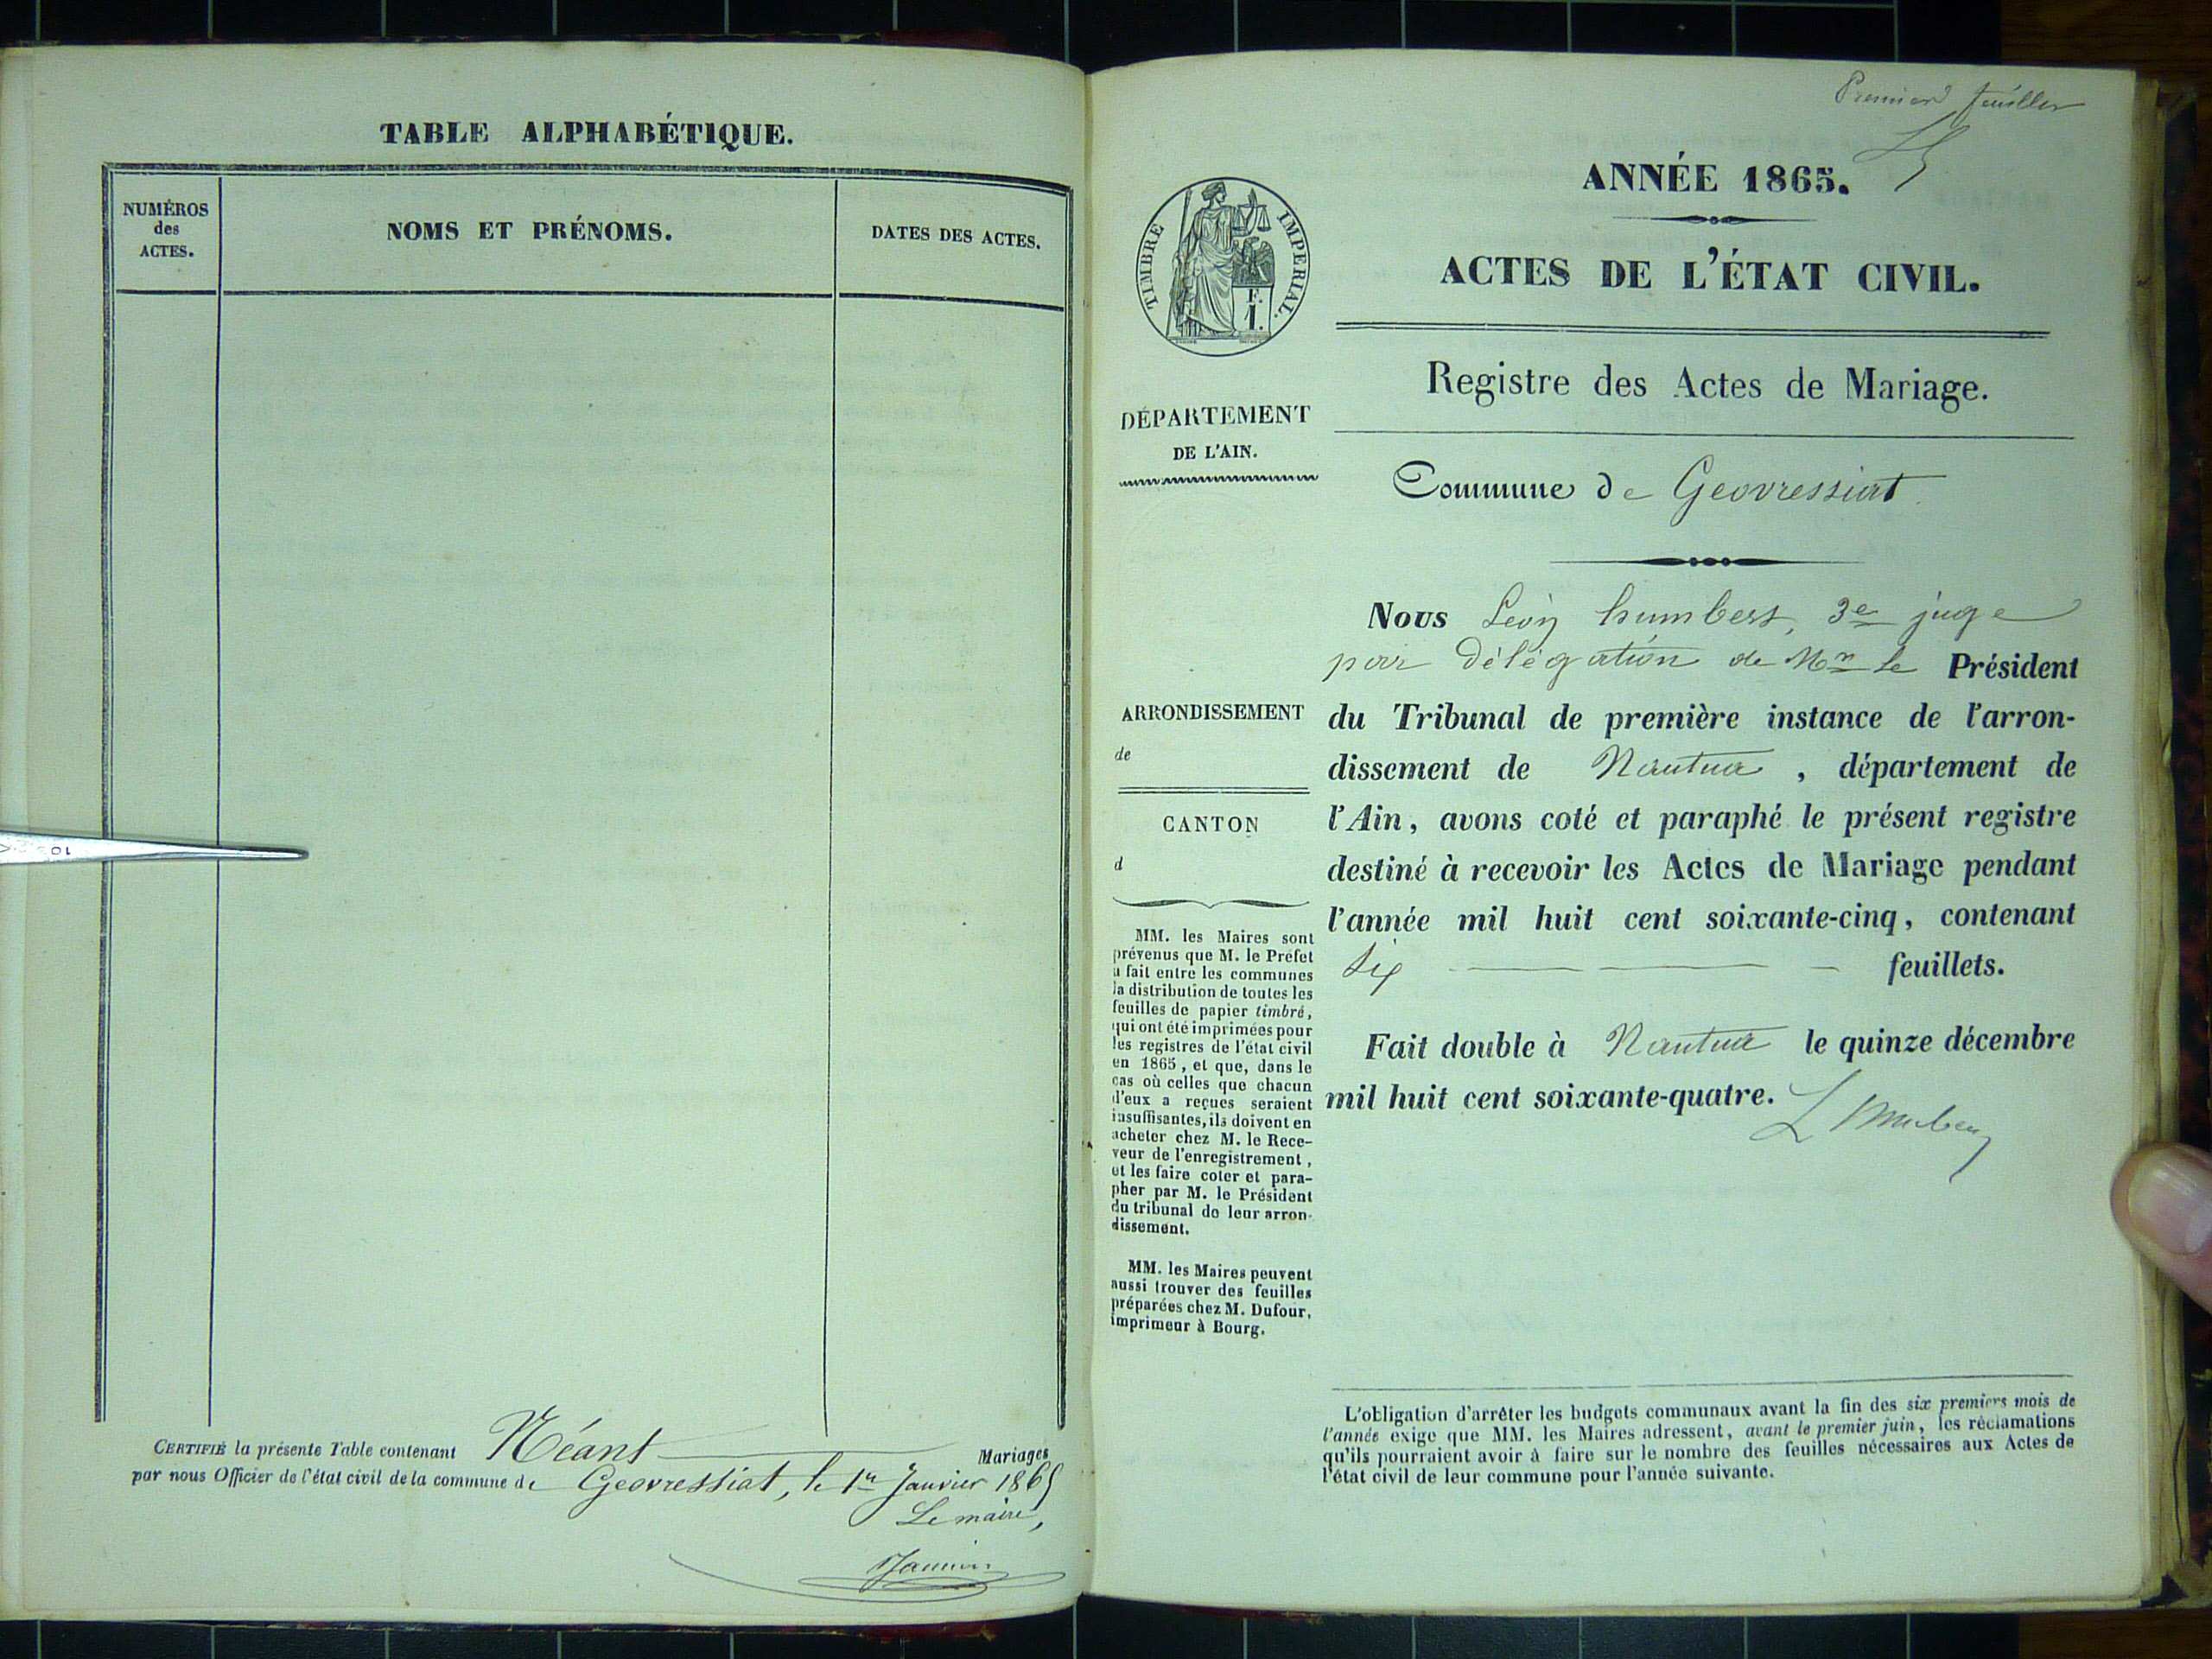 TABLE ALPHABÉTIQUE.
NUMÉROS
des
ACTES.
NOMS ET PRÉNOMS.
DATES DES ACTES.
CERTIFIÉ la présente Table contenant Néant Mariages
par nous Officier de l'état civil de la commune de Geovressiat, le 1er Janvier 1865
Le maire,
10
Premier feuillet
ANNÉE 1865.
ACTES DE L'ÉTAT CIVIL.
TIMBRE IMPERIAL.
F.
1.
Registre des Actes de Mariage.
DÉPARTEMENT
DE L'AIN.
Commune de Geovressiat
Nous Léon humbert, 3e juge
par délégation de Mr le Président
du Tribunal de première instance de l'arron-
dissement de Nantua, département de
l'Ain, avons coté et paraphé le présent registre
destiné à recevoir les Actes de Mariage pendant
l'année mil huit cent soixante-cinq, contenant
Six feuillets.
Fait double à Nantua le quinze décembre
mil huit cent soixante-quatre.
ARRONDISSEMENT
de
CANTON
d
MM. les Maires sont
prévenus que M. le Préfet
a fait entre les communes
la distribution de toutes les
feuilles de papier timbré,
qui ont été imprimées pour
les registres de l'état civil
en 1865, et que, dans le
cas où celles que chacun
d'eux a reçues seraient
insuffisantes, ils doivent en
acheter chez M. le Rece-
veur de l'enregistrement,
et les faire coter et para-
pher par M. le Président
du tribunal de leur arron-
dissement.
MM. les Maires peuvent
aussi trouver des feuilles
préparées chez M. Dufour,
imprimeur à Bourg.
L'obligation d'arrêter les budgets communaux avant la fin des six premiers mois de
l'année exige que MM. les Maires adressent, avant le premier juin, les réclamations
qu'ils pourraient avoir à faire sur le nombre des feuilles nécessaires aux Actes de
l'état civil de leur commune pour l'année suivante.